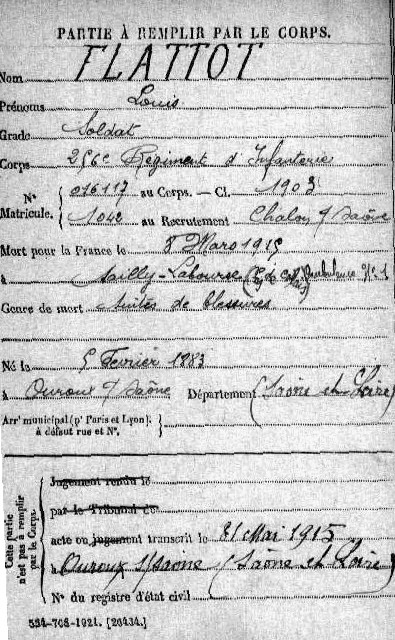 PARTIE À REMPLIR PAR LE CORPS.
Nom FLATTOT
Prénoms Louis
Grade Soldat
Corps 256e Régiment d'Infanterie
N° Matricule. 016117 au Corps. — Cl. 1903
1042 au Recrutement Chalon s/ Saône
Mort pour la France le 8 Mars 1915
à Sailly-Labourse (Pas de Calais) Ambulance N° 1
Genre de mort Suites de blessures
Né le 5 Février 1883
à Ouroux s/ Saône Département (Saône et Loire)
Arr^t municipal (p^r Paris et Lyon),
à défaut rue et N°.
Cette partie n'est pas à remplir par le Corps.
Jugement rendu le
par le Tribunal de
acte ou jugement transcrit le 31 Mai 1915
à Ouroux s/Saône (Saône et Loire)
N° du registre d'état civil
534-708-1921. [26434.]